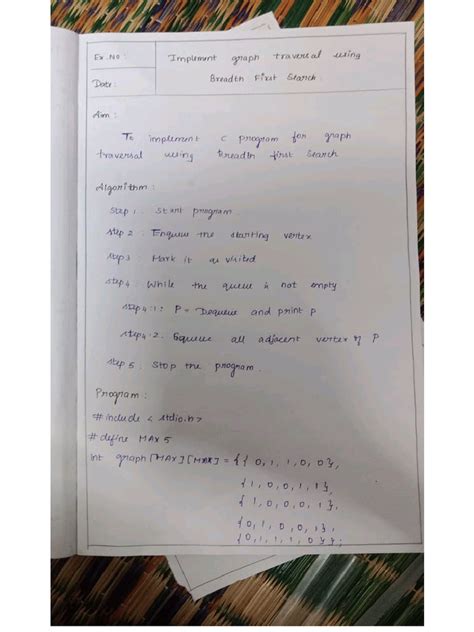 Ex.No :
Implement graph traversal using
Breadth First Search.
Date :
Aim :
To implement C program for graph
traversal using Breadth first Search
Algorithm :
Step 1 : Start program.
Step 2 : Enqueue the starting vertex
Step 3 : Mark it as visited
Step 4 : While the queue is not empty
Step 4.1 : P = Dequeue and print P
Step 4.2 : Equeue all adjacent vertex of P
Step 5 : Stop the program.
Program :
#include < stdio.h>
# define MAX 5
int graph [MAX] [MAX] = {{ 0, 1, 1, 0, 0},
{1, 0, 0, 1, 1},
{ 1, 0, 0, 0, 1},
{0, 1, 0, 0, 1},
{0, 1, 1, 1, 0}};